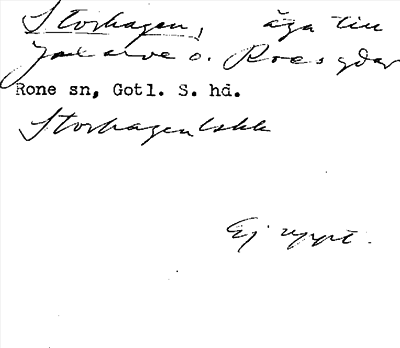 Storhagen, äga till
Jakarve o. Roes gdar
Rone sn, Gotl. S. hd.
Storhagen lskk
Ej uppt.